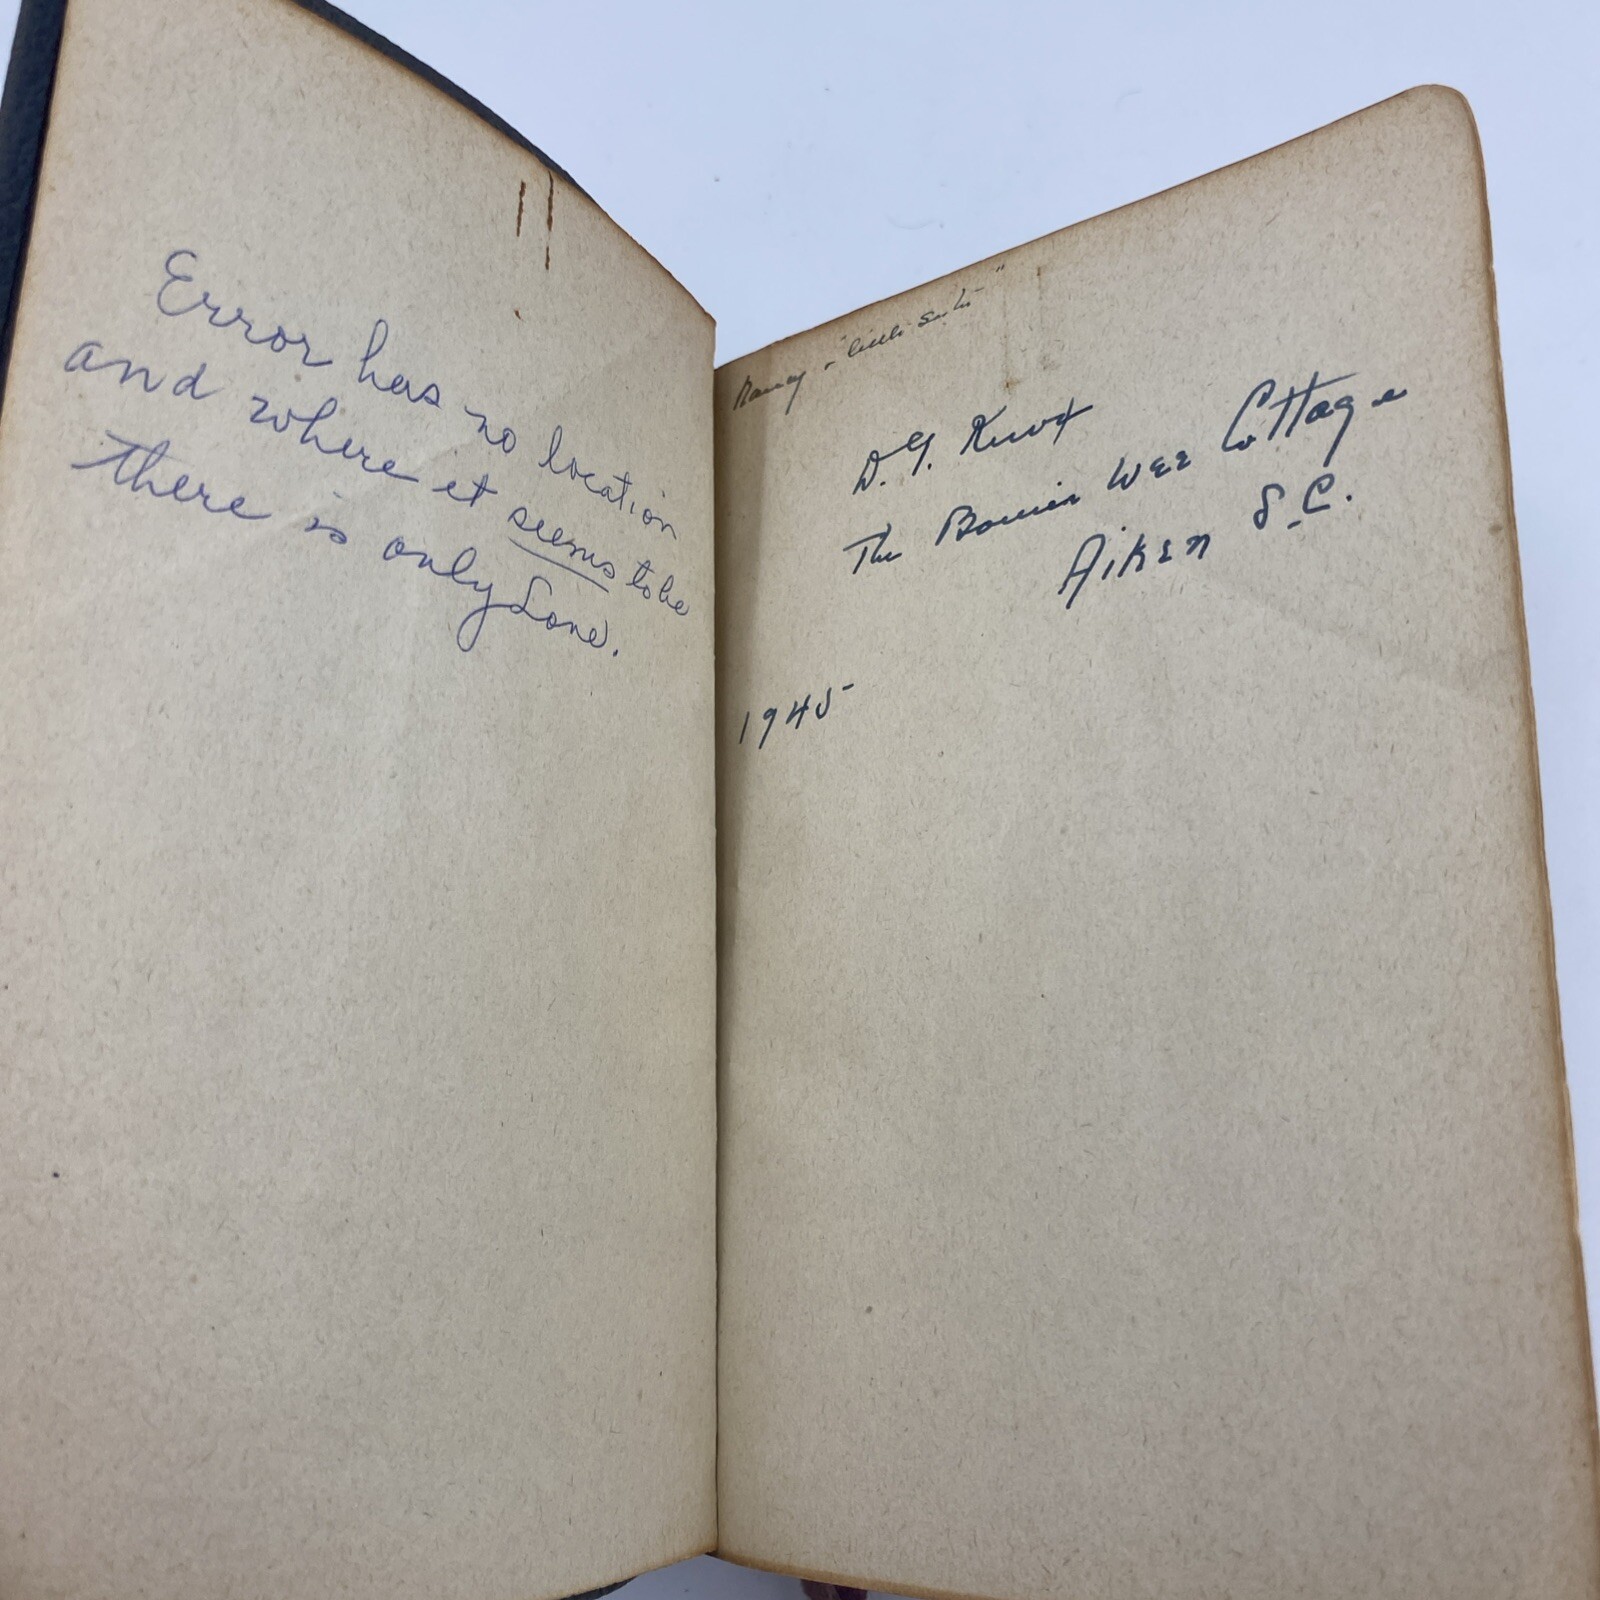 Error has no location
and where it seems to be
there is only Love.
Nancy - "little
D. G. Knox
The Bonnie Wee Cottage
Aiken S.C.
1945